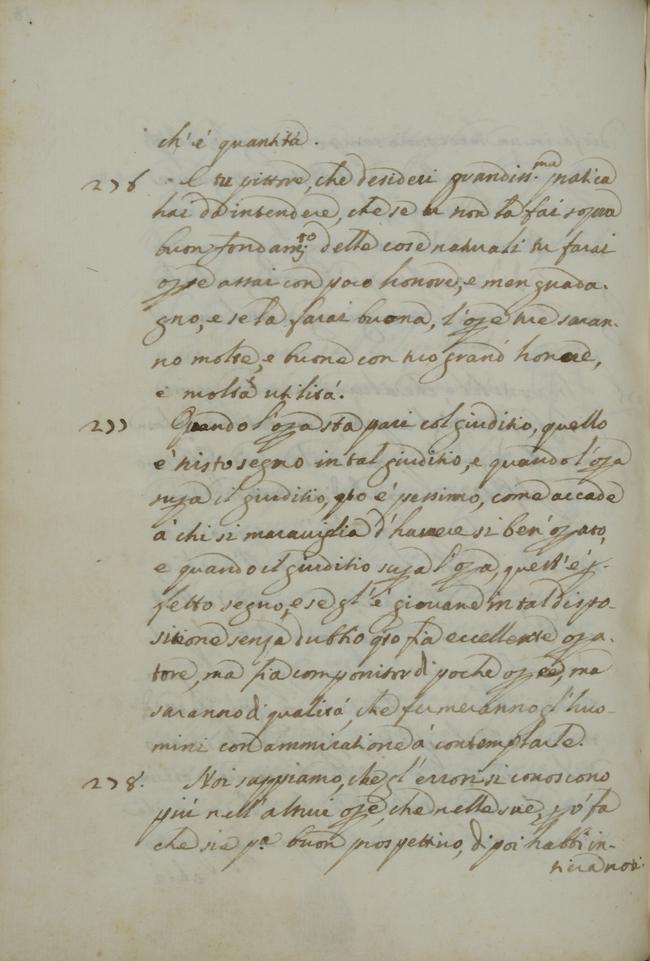 ch' è quantità.
276 E tu pittore, che desideri grandiss.ma pratica
hai da intendere, che se tu non la fai sopra
buon fondam.to delle cose naturali tu farai
ope assai con poco honore, e men guada-
gno, e se la farai buona, l'ope tue saran-
no molte, e buone con tuo grand' honore,
e molta utilità.
277 Quando l'opa sta pari col giuditio, quello
è tristo segno in tal giuditio, e quando l'opa
supa il giuditio, qto è pessimo, come accade
à chi si maraviglia d'havere si ben' opato,
e quando il giuditio supa l'opa, quest' è p-
fetto segno, e se gl' è giovane in tal dispo-
sitione senza dubbio qto fia eccellente opa-
tore, ma fia componitor di poche ope, ma
saranno di qualità, che fermeranno gl' huo-
mini con ammiratione à contemplarle.
278. Noi sappiamo, che gl' errori si conoscono
più nell' altrui ope, che nelle sue, pò fa
che sia pa buon prospettivo, di poi habbi in-
tiera noti-